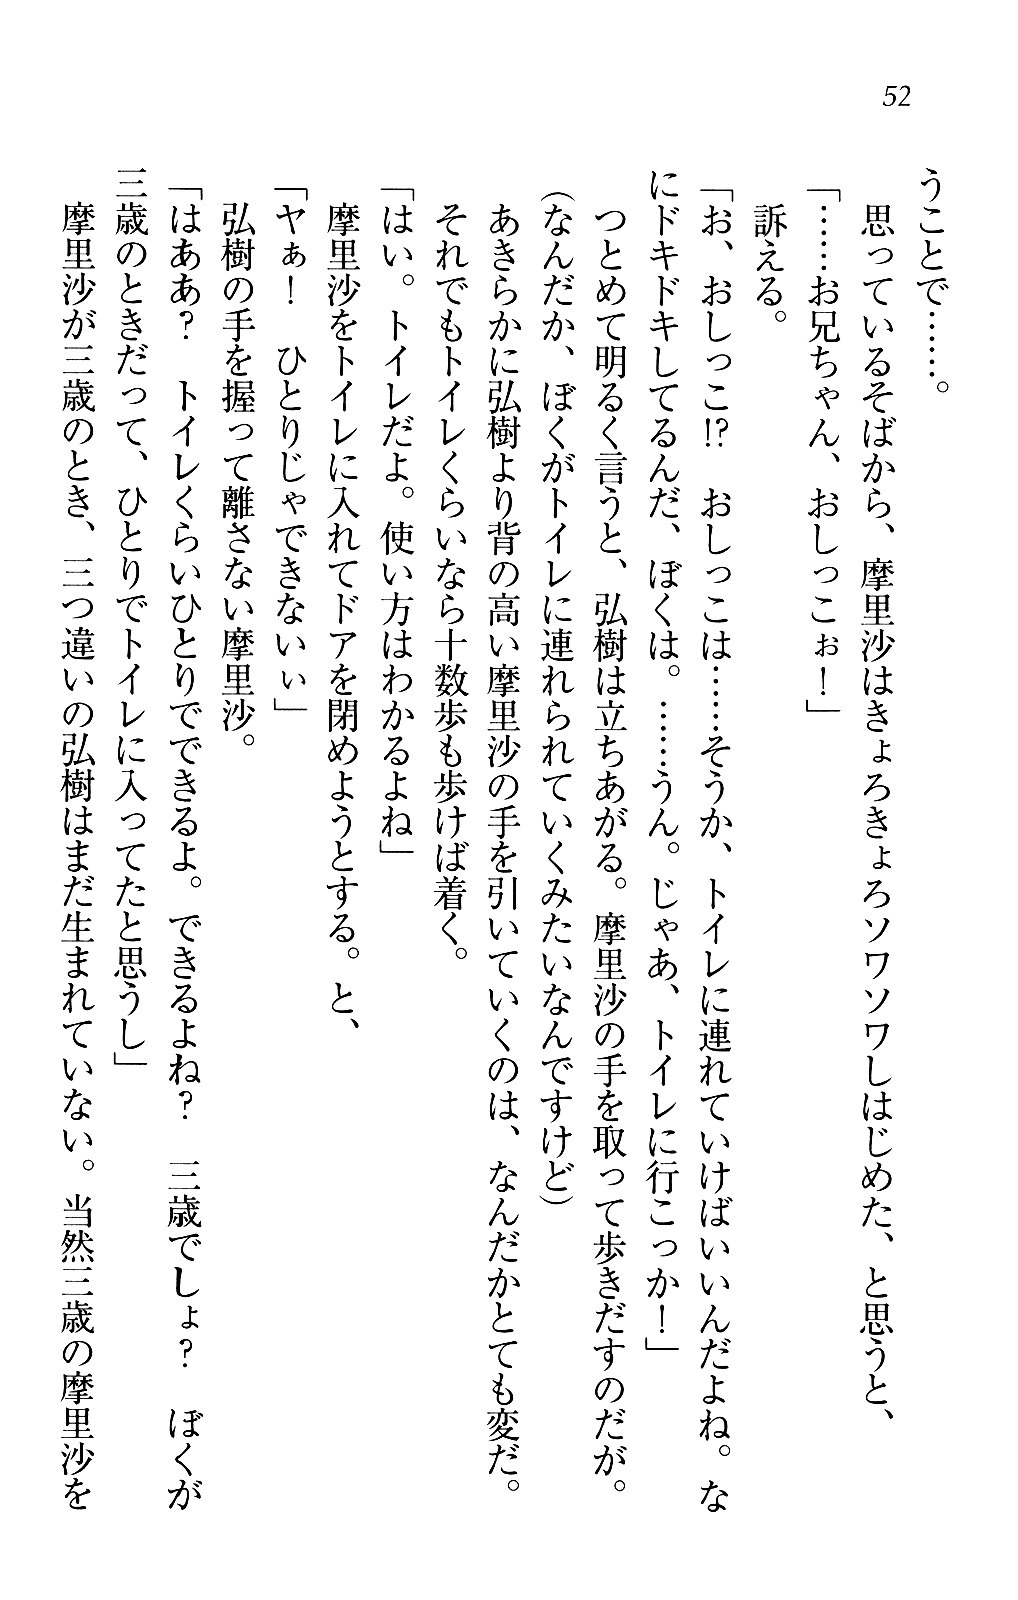 52
うことで……。
思っているそばから、摩里沙はきょろきょろソワソワしはじめた、と思うと、
「……お兄ちゃん、おしっこぉ！」
訴える。
「お、おしっこ!?　おしっこは……そうか、トイレに連れていけばいいんだよね。な
にドキドキしてるんだ、ぼくは。……うん。じゃあ、トイレに行こっか！」
つとめて明るく言うと、弘樹は立ちあがる。摩里沙の手を取って歩きだすのだが。
(なんだか、ぼくがトイレに連れられていくみたいなんですけど)
あきらかに弘樹より背の高い摩里沙の手を引いていくのは、なんだかとても変だ。
それでもトイレくらいなら十数歩も歩けば着く。
「はい。トイレだよ。使い方はわかるよね」
摩里沙をトイレに入れてドアを閉めようとする。と、
「ヤぁ！　ひとりじゃできないぃ」
弘樹の手を握って離さない摩里沙。
「はああ？　トイレくらいひとりでできるよ。できるよね？　三歳でしょ？　ぼくが
三歳のときだって、ひとりでトイレに入ってたと思うし」
摩里沙が三歳のとき、三つ違いの弘樹はまだ生まれていない。当然三歳の摩里沙を